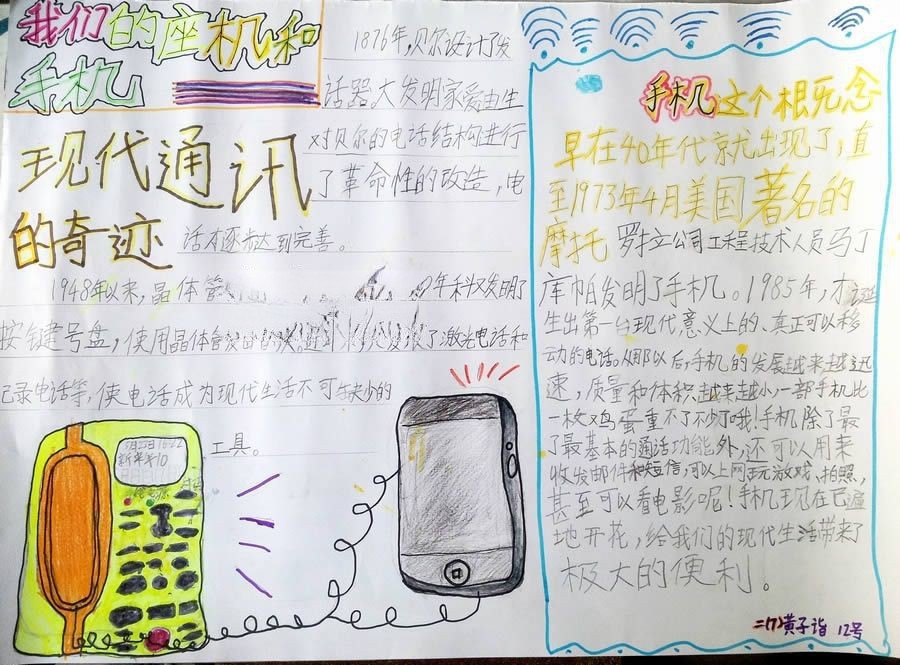 我们的座机和
手机
现代通讯
的奇迹
1876年,贝尔设计了发
话器大发明家爱由生
对贝尔的电话结构进行
了革命性的改造,电
话才逐步达到完善。
1948年以来,晶体管
年科学发明了
按键号盘,使用晶体管
了激光电话和
记录电话等,使电话成为现代生活不可缺少的
工具。
手机这个概念
早在40年代就出现了,直
至1973年4月美国著名的
摩托罗拉公司工程技术人员马丁
库帕发明了手机。1985年,才诞
生出第一台现代意义上的、真正可以移
动的电话。从那以后,手机的发展越来越迅
速,质量和体积越来越小一部手机比
一枚鸡蛋重不了不少哦!手机除了最
了最基本的通话功能外,还可以用来
收发邮件和短信,可以上网,玩游戏、拍照,
甚至可以看电影呢!手机现在已遍
地开花,给我们的现代生活带来了
极大的便利。
二(7)黄子诣 12号